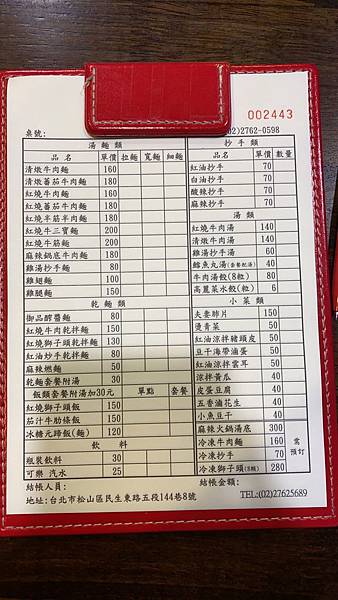 002443
桌號:
(02)2762-0598
湯麵類
品名 單價 拉麵 寬麵 細麵
清燉牛肉麵 160
清燉蕃茄牛肉麵 180
紅燒牛肉麵 160
紅燒蕃茄牛肉麵 180
紅燒半筋半肉麵 180
紅燒牛三寶麵 200
紅燒牛筋麵 200
麻辣鍋底牛肉麵 180
雞湯抄手麵 80
雞翅麵 100
雞腿麵 150
乾麵類
御品醡醬麵 80
紅燒牛肉乾拌麵 150
紅燒獅子頭乾拌麵 130
紅油炒手乾拌麵 80
麻辣燃麵 50
乾麵套餐附湯 30
飯類套餐附湯加30元 單點 套餐
紅燒獅子頭飯 150
茄汁牛肋條飯 150
冰糖元蹄飯(麵) 120
飲料
瓶裝飲料 30
可樂 汽水 25
抄手類
品名 單價 數量
紅油抄手 70
白油抄手 70
酸辣抄手 70
麻辣抄手 70
湯類
紅燒牛肉湯 140
清燉牛肉湯 140
雞湯抄手湯 60
鱈魚丸湯(套餐配湯) 40
牛肉湯餃(8粒) 80
高麗菜水餃(粒) 6
小菜類
夫妻肺片 150
燙青菜 50
紅油涼拌豬頭皮 50
豆干海帶滷蛋 50
紅油涼拌雲耳 50
涼拌黃瓜 40
皮蛋豆腐 40
五香滷花生 40
小魚豆干 40
麻辣火鍋湯底 300
冷凍牛肉麵 160
冷凍抄手 70
冷凍獅子頭 280
需預訂
結帳人員:
結帳金額:
地址:台北市松山區民生東路五段144巷8號
TEL:(02)27625689